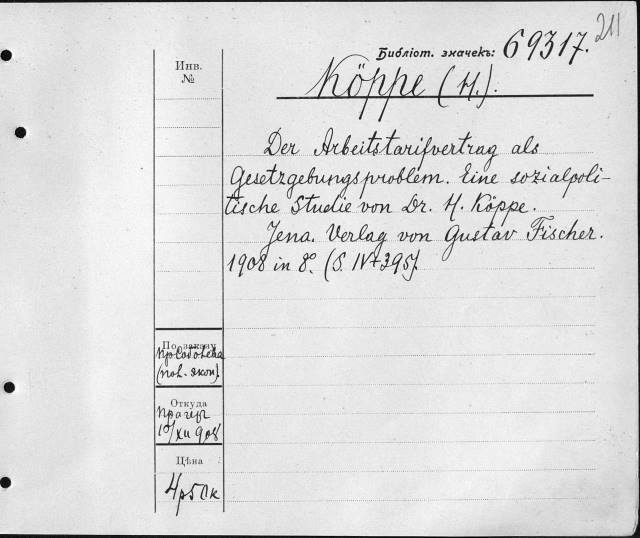 211
Библіот. значекъ: 69317.
Инв.
№
Köppe (H.).
Der Arbeitstarifvertrag als
Gesetzgebungsproblem. Eine sozialpoli-
tische Studie von Dr. H. Köppe.
Jena. Verlag von Gustav Fischer.
1908 in 8º. (S. IV+395).
По заказу
(пол. экон).
Откуда
Прагеръ
10/XII 908
Цѣна
4р50к